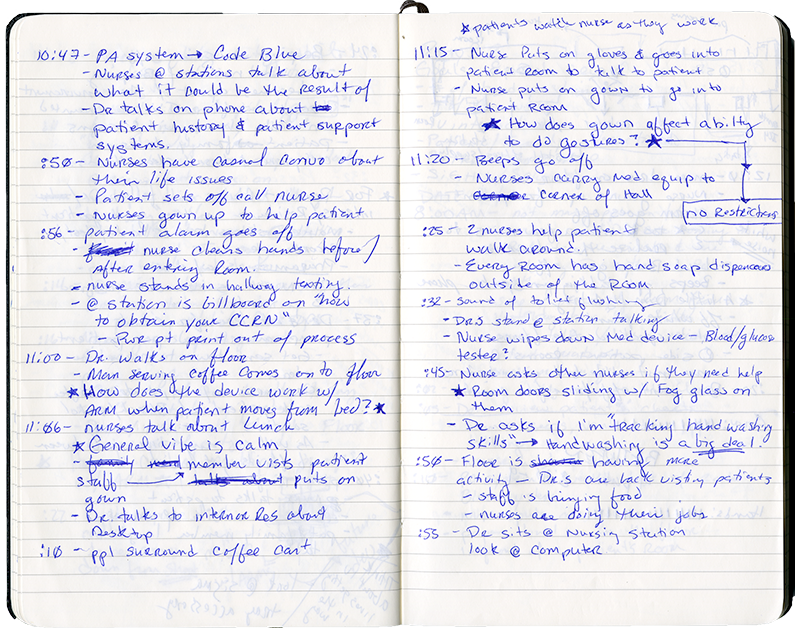 10:47 - PA system → Code Blue
- Nurses @ stations talk about
what it could be the result of
- Dr talks on phone about
patient history & patient support
systems.
:50 - Nurses have casual convo about
their life issues
- Patient sets off call nurse
- Nurses gown up to help patient
:56 - patient alarm goes off
- nurse cleans hands before/
After entering Room.
- nurse stands in hallway texting.
- @ station is billboard on "how
to obtain your CCRN"
- Pwr pt print out of process
11:00 - Dr. walks on floor
- Man serving coffee comes on to floor
★ How does the device work w/
ARM when patient moves from bed? ★
11:06 - nurses talk about Lunch
★ General vibe is calm
- family member vists patient
staff → talks about puts on
gown
- Dr. talks to intern or Res about
Desktop
:10 - ppl surround coffee cart
★ patients watch nurse as they work
11:15 - Nurse Puts on gloves & goes into
patient room to talk to patient
- Nurse puts on gown to go into
patient Room
★ How does gown affect abilty
to do gestures? ★
11:20 - Beeps go off
- Nurses carry med equip to
corner of Hall
no Restrictions
:25 - 2 nurses help patient
walk around.
- Every Room has hand soap dispensers
outside of the Room
:32 - sound of toilet flushing
- DRS stand @ station talking
- Nurse wipes down Med device - Blood/glucose
tester?
:45 - Nurse asks other nurses if they need help
★ Room doors sliding w/ Fog glass on
them
- Dr asks if I'm "tracking handwashing
skills" → Handwashing is a big deal!
:50 - Floor is having more
activity - Dr.s are back visting patients
- staff is bringing food
- nurses are doing their jobs
:55 - Dr sits @ Nursing station
look @ computer